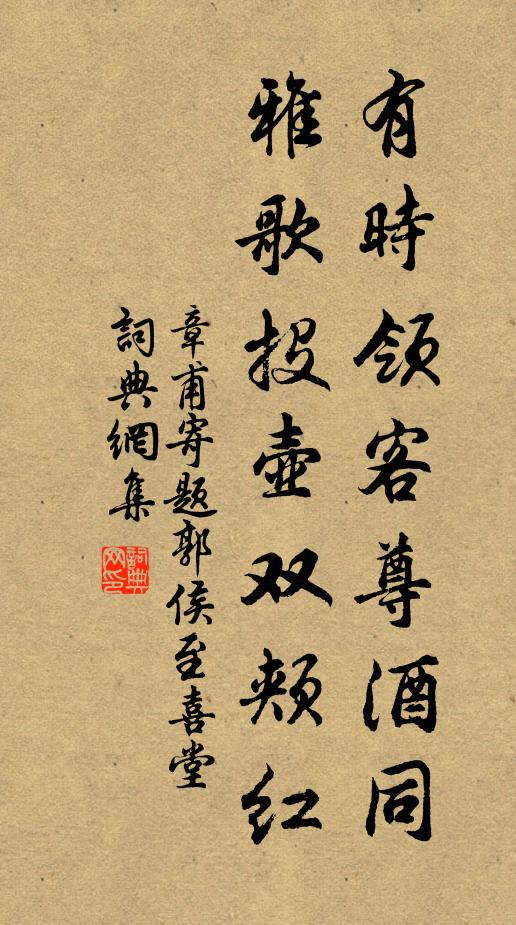 有時領客尊酒同
雅歌投壺双頰紅
章甫寄题郭侯至喜堂
詞典網集
詞典網印